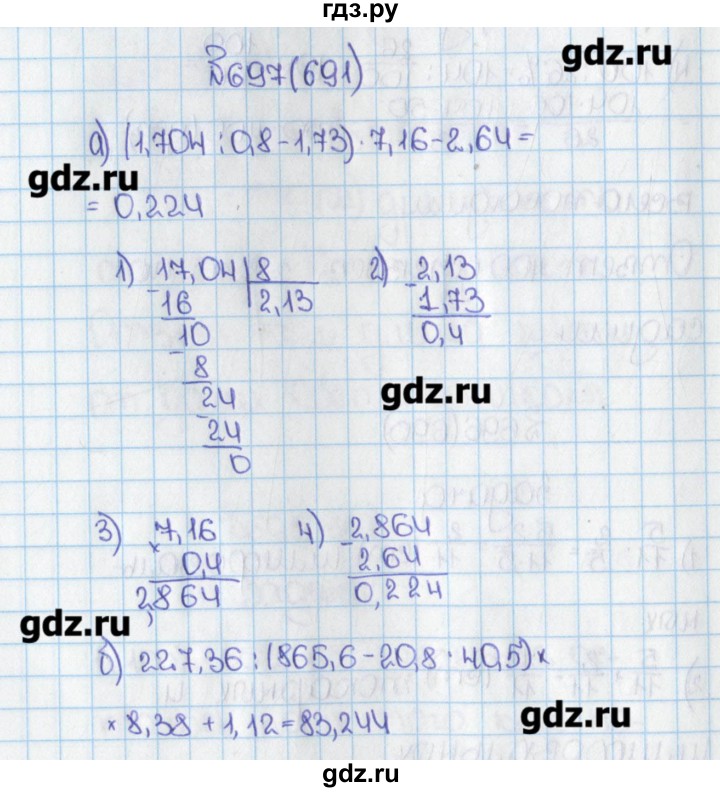 гдз.ру
gdz.ru
№697(691)
а) (1,704 : 0,8 - 1,73) · 7,16 - 2,64 =
gdz.ru
= 0,224
1) 17,04 | 8
16 2,13
10
8
24
24
0
2) - 2,13
1,73
0,4
gdz.ru
3) × 7,16
0,4
2,864
4) - 2,864
2,64
0,224
gdz.ru
б) 227,36 : (865,6 - 20,8 · 40,5) ×
gdz.ru
× 8,38 + 1,12 = 83,244
gdz.ru